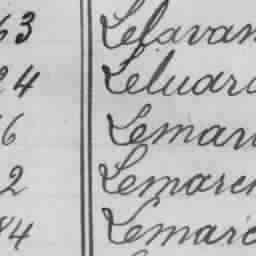 63 Lefavan
24 Leluard
6 Leman
2 Lemaren
84 Lemare